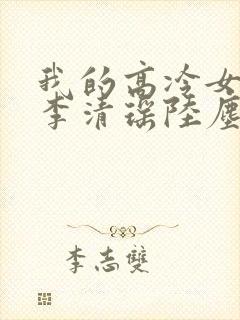 我的高冷女
李清瑶陆尘
李志双